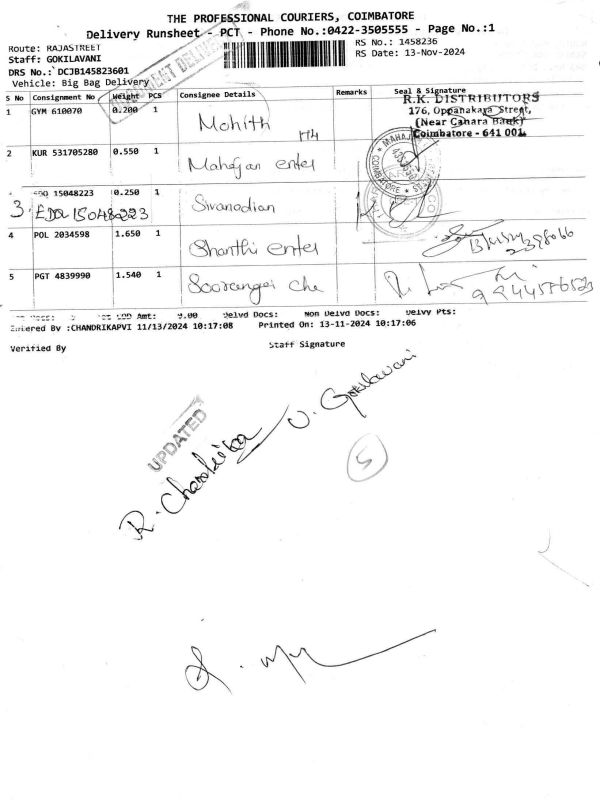 THE PROFESSIONAL COURIERS, COIMBATORE
Delivery Runsheet - PCT - Phone No.:0422-3505555 - Page No.:1
Route: RAJASTREET
RS No.: 1458236
Staff: GOKILAVANI
RS Date: 13-Nov-2024
DRS No.: DCJB145823601
Vehicle: Big Bag Delivery
S No Consignment No Weight PCS Consignee Details Remarks Seal & Signature
1 GYM 610070 0.200 1 Mohith
R.K. DISTRIBUTORS
176, Oppanakara Street,
(Near Canara Bank)
Coimbatore - 641 001.
2 KUR 531705280 0.550 1 Mahajan enter
COIMBATORE
15048223 0.250 1 Sivanadian
3. EDQ 15048223
4 POL 2034598 1.650 1 Shanthi enter
5 PGT 4839990 1.540 1 Soorangei Che
Amt: 0.00 Delvd Docs: Non Delvd Docs: Delvy Pts:
Entered By :CHANDRIKAPVI 11/13/2024 10:17:08 Printed On: 13-11-2024 10:17:06
Verified By Staff Signature
UPDATED
R. Chandrika
V. Gokilavani
5